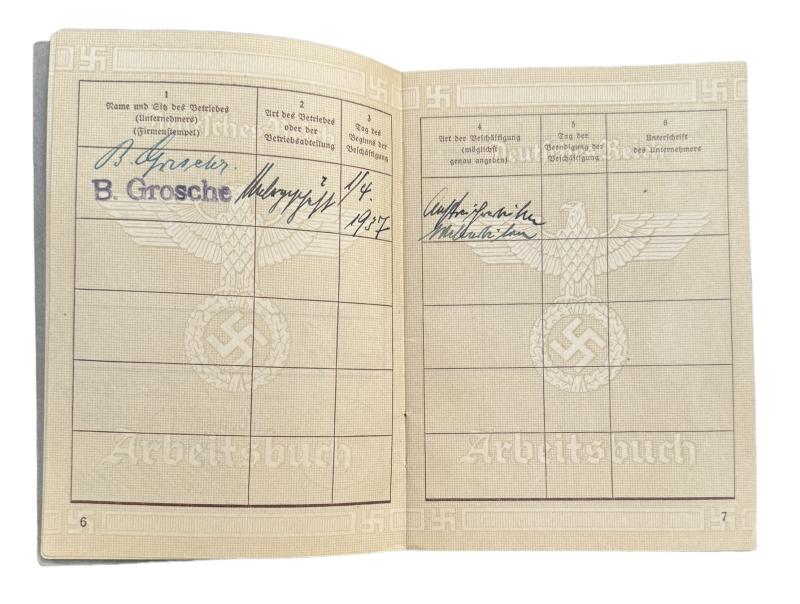 Deutsches Reich
1
Name und Sitz des Betriebes
(Unternehmers)
(Firmenstempel)
2
Art des Betriebes
oder der
Betriebsabteilung
3
Tag des
Beginns der
Beschäftigung
B. Grosche
B. Grosche
Malergeschäft
1/4.
1937
Arbeitsbuch
6
Deutsches Reich
4
Art der Beschäftigung
(möglichst
genau angeben)
5
Tag der
Beendigung der
Beschäftigung
6
Unterschrift
des Unternehmers
Anstreicharbeiten
Malerarbeiten
Arbeitsbuch
7